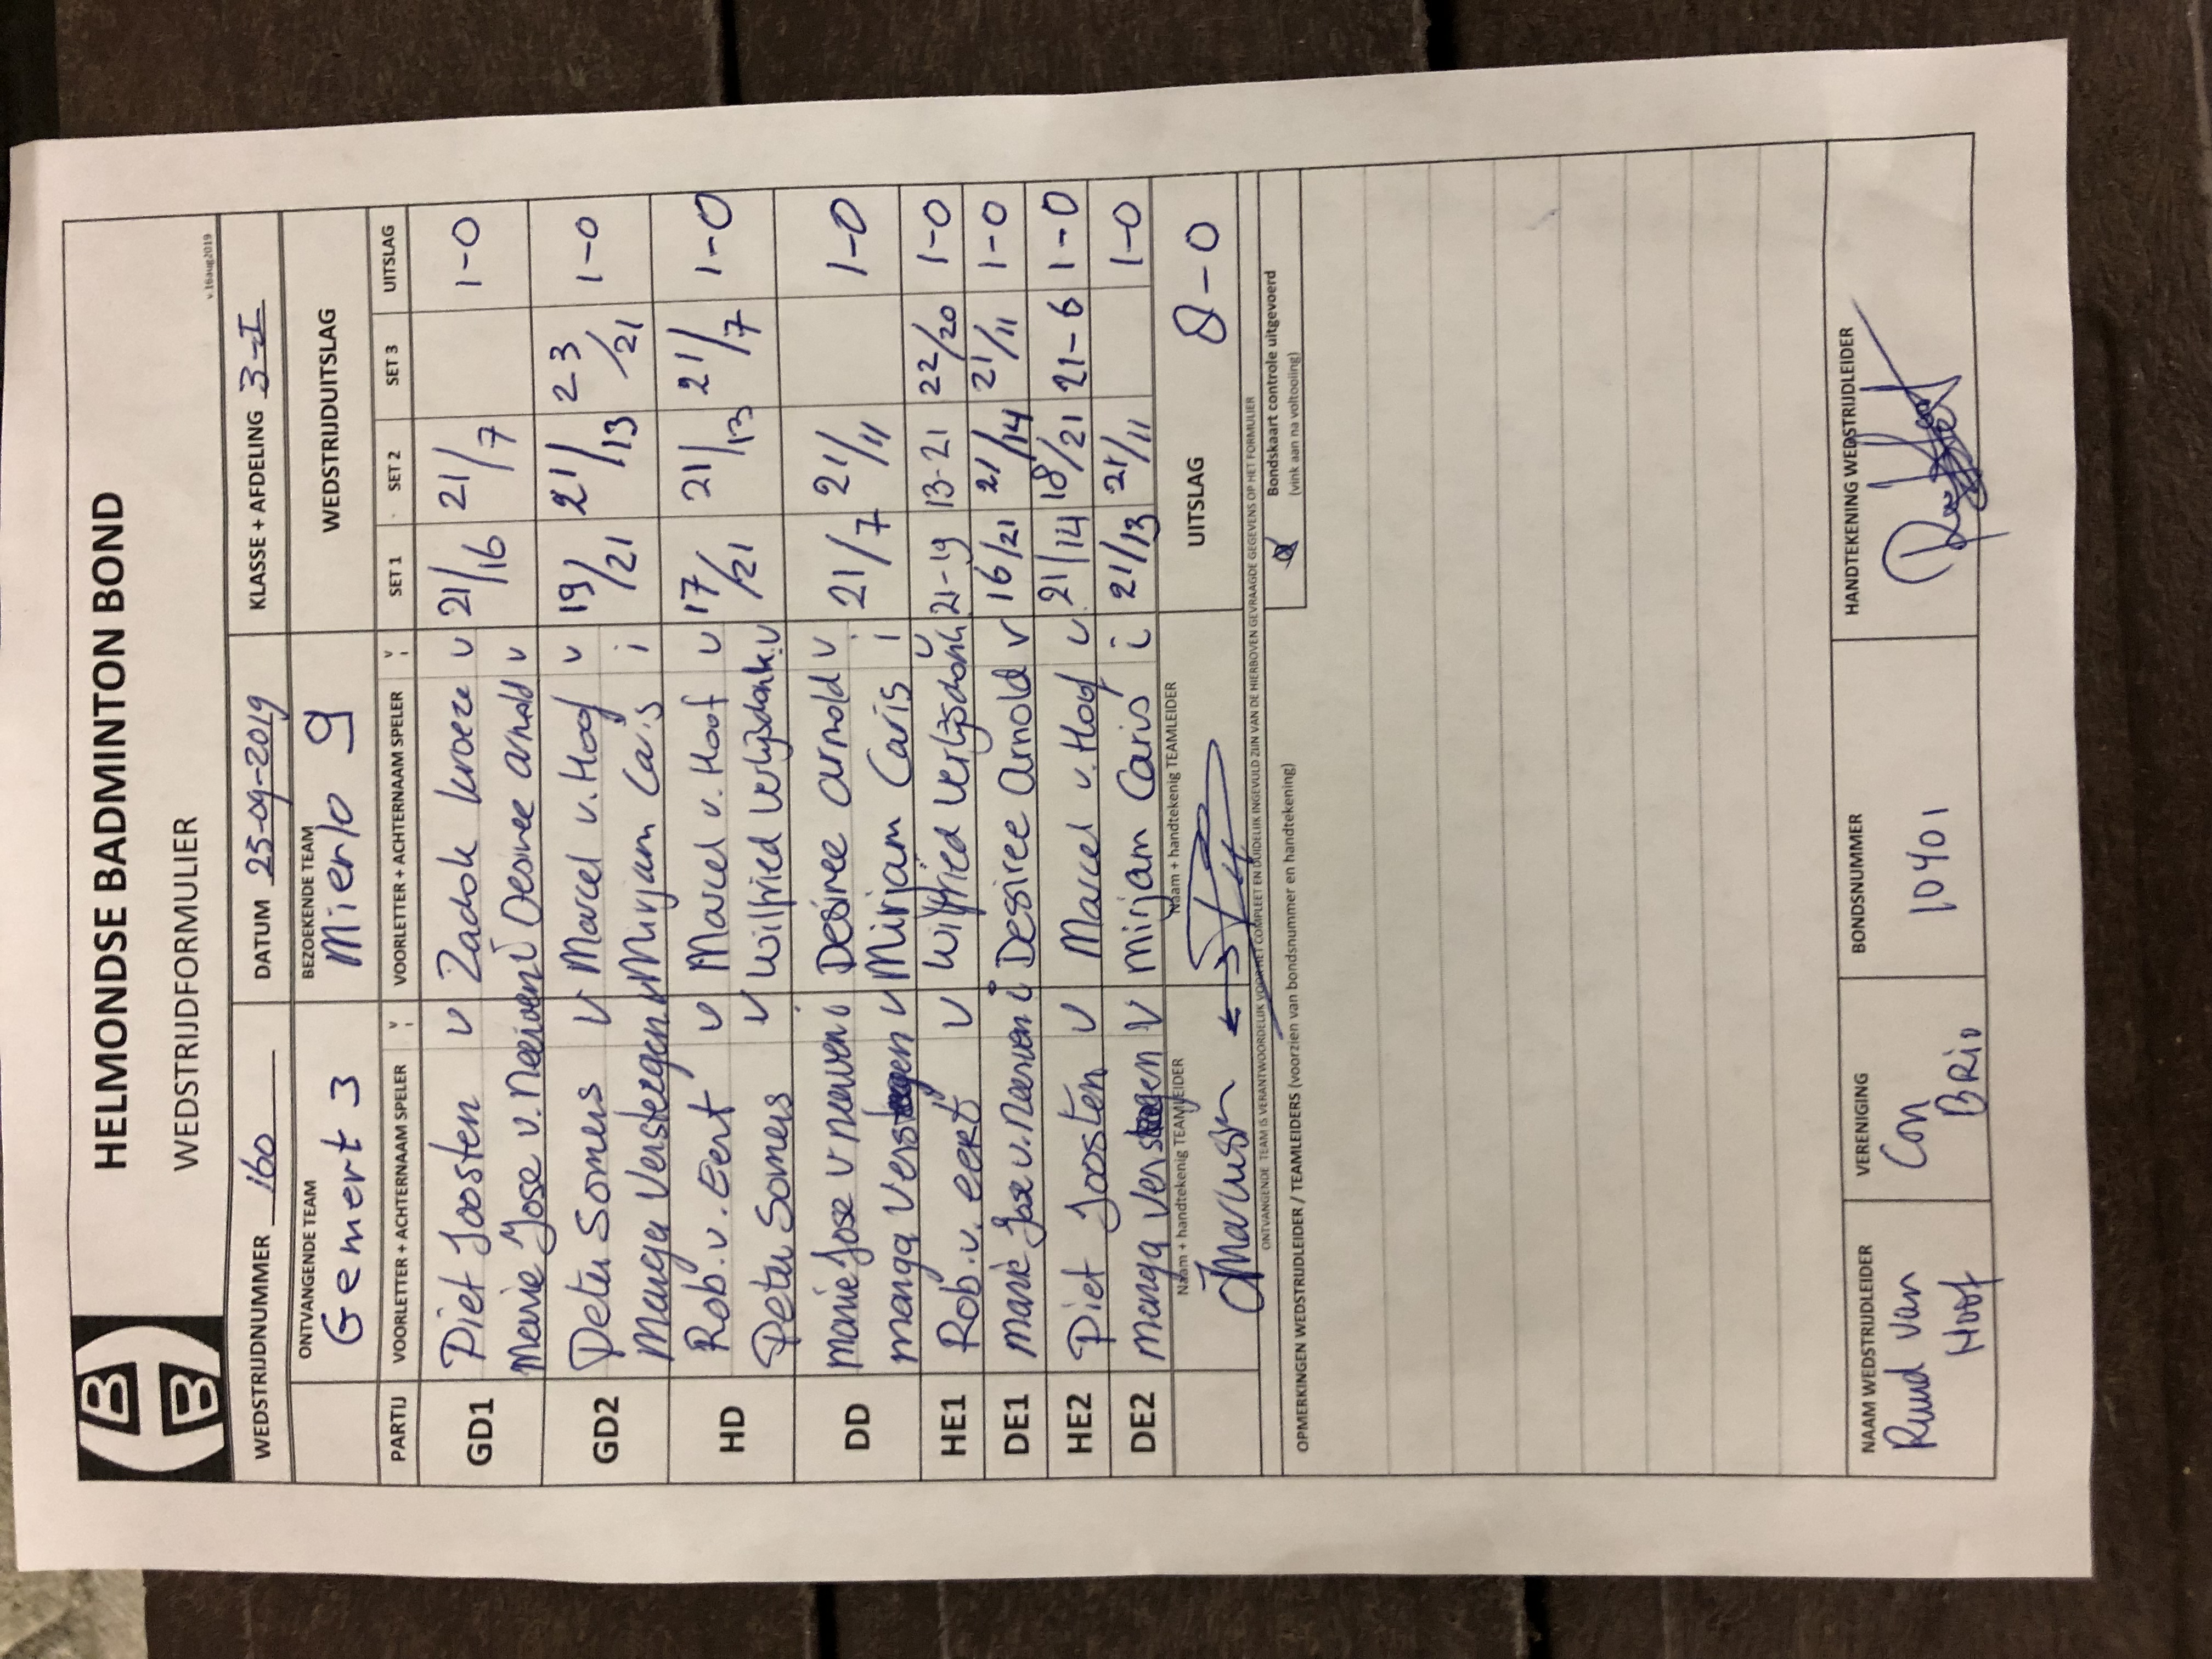 HELMONDSE BADMINTON BOND
WEDSTRIJDFORMULIER
v.16aug2019
WEDSTRIJDNUMMER 160 DATUM 25-09-2019 KLASSE + AFDELING 3-I
ONTVANGENDE TEAM BEZOEKENDE TEAM WEDSTRIJDUITSLAG
Gemert 3 Mierlo 9
PARTIJ VOORLETTER + ACHTERNAAM SPELER V I VOORLETTER + ACHTERNAAM SPELER V I SET 1 SET 2 SET 3 UITSLAG
GD1 Piet Joosten v Zadok kroeze v 21/16 21/7 1-0
Marie Jose v. Neerven i Desiree arnold v
GD2 Peter Somers v Marcel v. Hoof v 19/21 21/13 23/21 1-0
Manga Verstegen v Mirjam Caris i
HD Rob. v. Eert v Marcel v. Hoof v 17/21 21/13 21/7 1-0
Peter Somers v Wilfried Verlijsdonk v
DD marie Jose v neerven i Desiree arnold v 21/7 21/11 1-0
manga Verstegen v Mirjam Caris i
HE1 Rob. v. eert v Wilfried Verlijsdonk v 21-19 13-21 22/20 1-0
DE1 marie Jose v. Neerven i Desiree Arnold v 16/21 21/14 21/11 1-0
HE2 Piet Joosten v Marcel v. Hoof v 21/14 18/21 21-6 1-0
DE2 manga Verstegen v mirjam Caris i 21/13 21/11 1-0
Naam + handtekenig TEAMLEIDER Naam + handtekenig TEAMLEIDER UITSLAG 8-0
ONTVANGENDE TEAM IS VERANTWOORDELIJK VOOR HET COMPLEET EN DUIDELIJK INGEVULD ZIJN VAN DE HIERBOVEN GEVRAAGDE GEGEVENS OP HET FORMULIER
Bondskaart controle uitgevoerd
(vink aan na voltooling)
OPMERKINGEN WEDSTRIJDLEIDER / TEAMLEIDERS (voorzien van bondsnummer en handtekening)
NAAM WEDSTRIJDLEIDER VERENIGING BONDSNUMMER HANDTEKENING WEDSTRIJDLEIDER
Ruud van Hoof Con Brio 10401